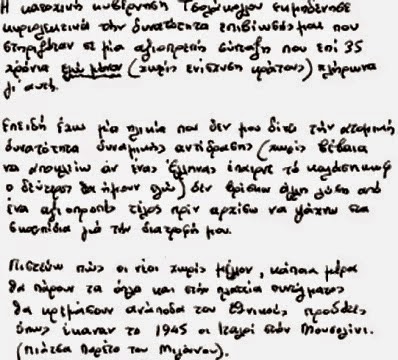 Η κατοχική κυβέρνηση Τσολάκογλου εκμηδένησε
κυριολεκτικά την δυνατότητα επιβίωσής μου που
στηριζόταν σε μία αξιοπρεπή σύνταξη που επί 35
χρόνια εγώ μόνον (χωρίς ενίσχυση κράτους) πλήρωνα
γι' αυτή.
Επειδή έχω μία ηλικία που δεν μου δίνει την ατομική
δυνατότητα δυναμικής αντίδρασης (χωρίς βέβαια
να αποκλείω αν ένας Έλληνας έπαιρνε το καλάσνικωφ
ο δεύτερος θα ήμουν εγώ) δεν βρίσκω άλλη λύση από
ένα αξιοπρεπές τέλος πριν αρχίσω να ψάχνω στα
σκουπίδια για την διατροφή μου.
Πιστεύω πως οι νέοι χωρίς μέλλον, κάποια μέρα
θα πάρουν τα όπλα και στην πλατεία συντάγματος
θα κρεμάσουν ανάποδα του εθνικούς προδότες
όπως έκαναν το 1945 οι Ιταλοί στον Μουσολίνι.
(πιάτσα Παρέτο του Μιλάνου).